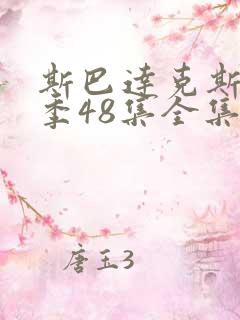 斯巴达克斯
季48集全集
唐玉3